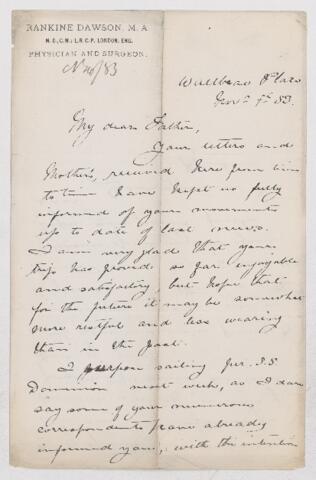 RANKINE DAWSON, M.A.
M.D.,C.M.; L.R.C.P. LONDON, ENG.
PHYSICIAN AND SURGEON.
Nov 7/83
Nov. 7th 83.
My dear Father,
Your letters and
Mother's, received here from time
to time have kept us fully
informed of your movements
up to date of last news.
I am very glad that your
trip has proved so far enjoyable
and satisfactory, but hope that
for the future it may be somewhat
more restful and less wearing
than in the past.
I purpose sailing per. S.S
Dominion next week, as I dare
say some of your numerous
correspondents have already
informed you, with the intention